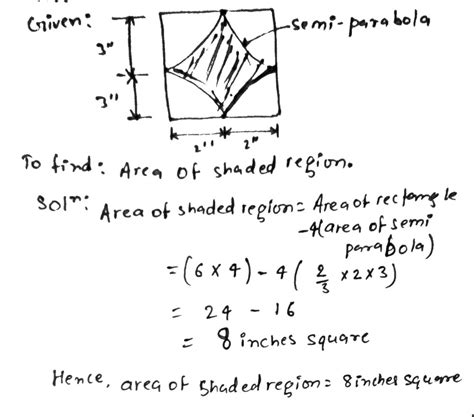 Given:
semi-parabola
3"
3"
2"
2"
To find: Area of shaded region.
Solⁿ: Area of shaded region = Area of rectangle
-4(area of semi
parabola)
= (6 x 4) - 4 ( 2/3 x 2 x 3)
= 24 - 16
= 8 inches square
Hence, area of shaded region = 8 inches square